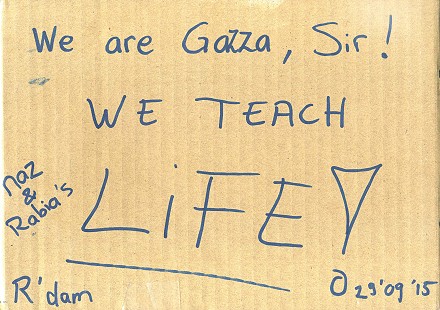 We are Gazza, Sir!
WE TEACH
LiFE!
naz
&
Rabia's
R'dam
29'09'15